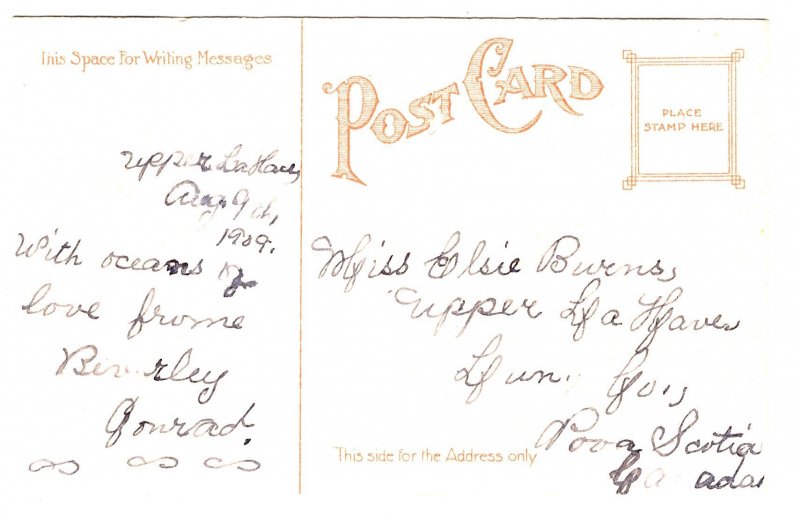 This Space For Writing Messages
POST CARD
PLACE
STAMP HERE
Upper LaHave,
Aug 9th,
1909.
With oceans of
love frome
Beverley
Conrad.
Miss Elsie Burns,
Upper La Have,
Lun. Co.,
Nova Scotia
Canada.
This side for the Address only